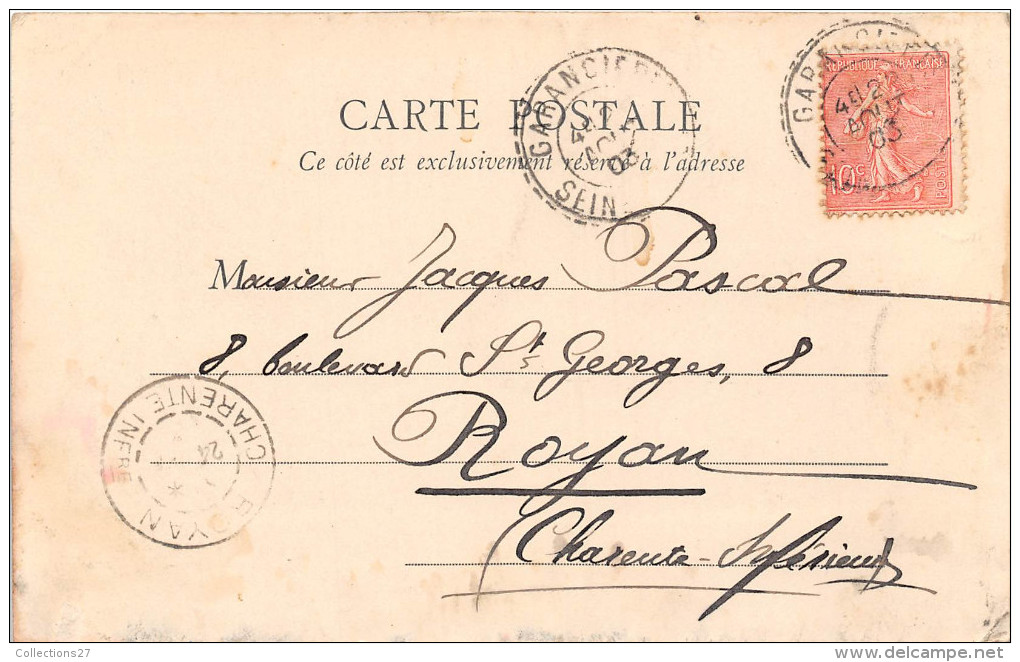 CARTE POSTALE
Ce côté est exclusivement réservé à l'adresse
GARANCIER
AOUT
03
SEINE
RÉPUBLIQUE FRANÇAISE
10c
POSTES
GARANCIER
AOUT
03
Monsieur Jacques Pascal
8, boulevard St Georges, 8
Royan
(Charente-Inférieure)
CHARENTE INFRE
24
ROYAN
Collections27
delcampe.net